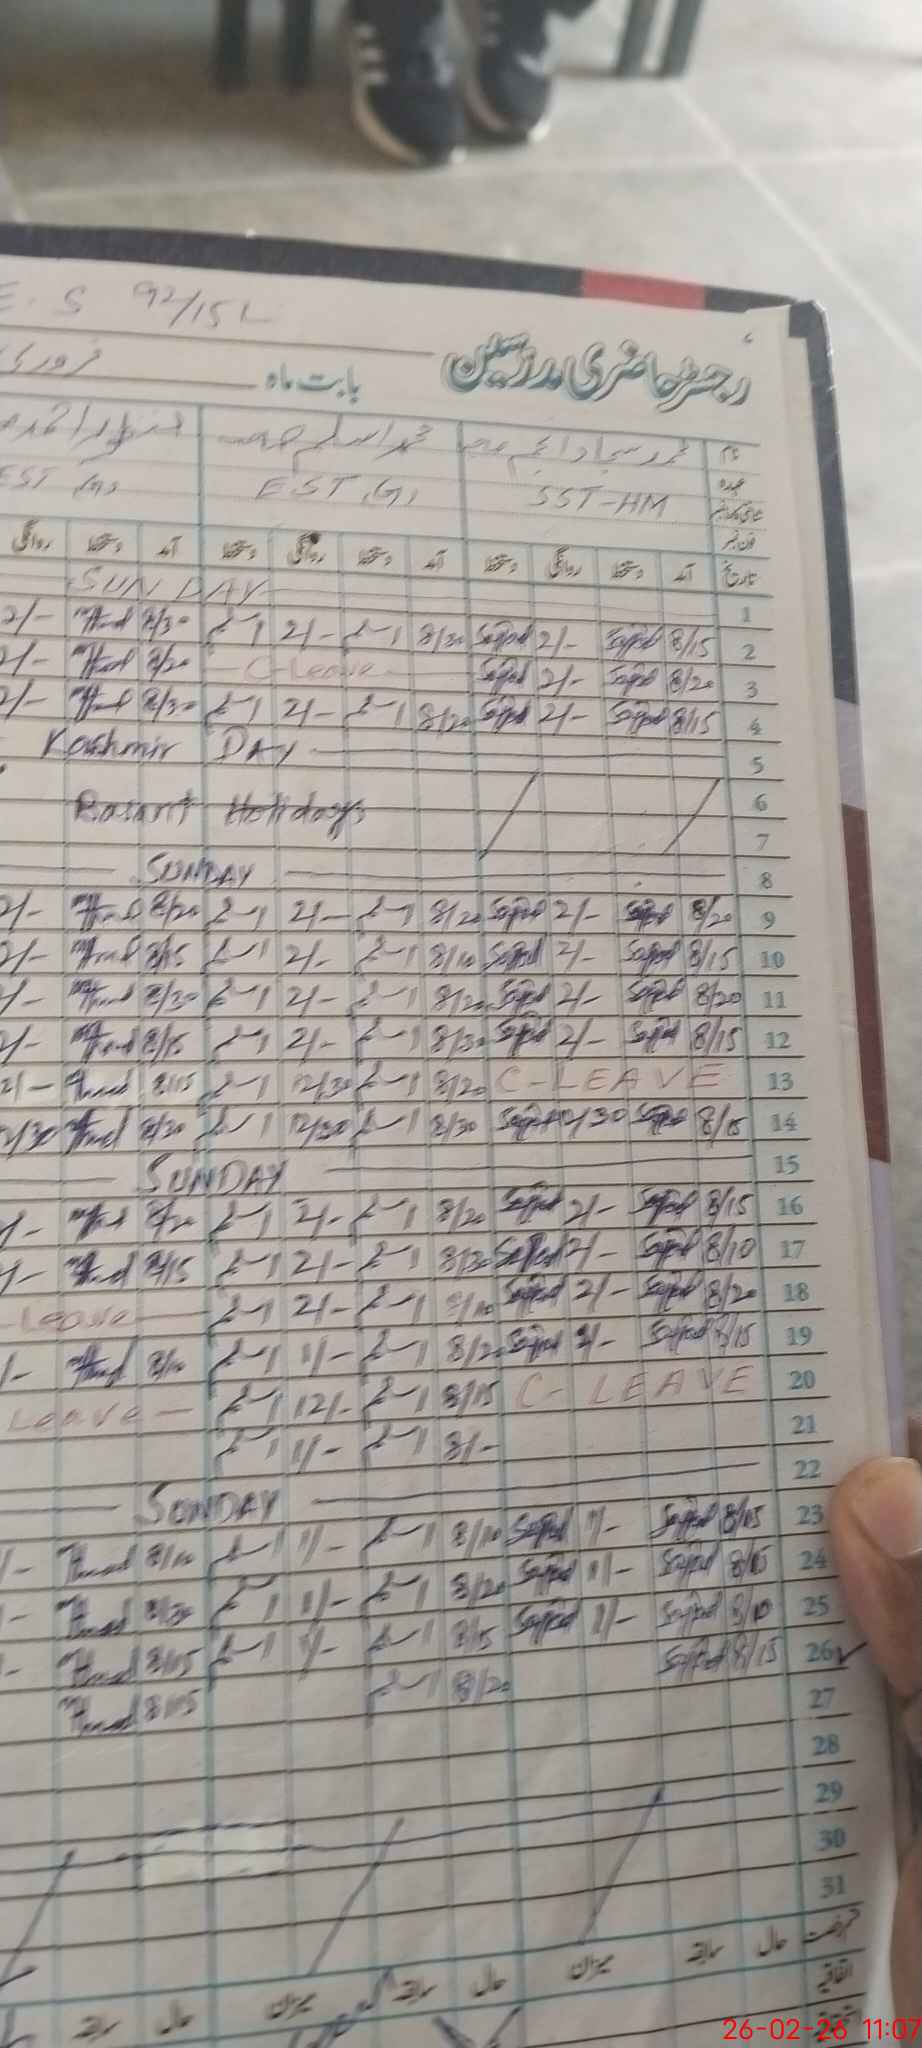 E. S 92/15 L
رجسٹر حاضری مدرسین
بابت ماہ فروری
نام محمد سجاد انجم محمد اسلم
عہدہ SST-HM EST (G) EST (G)
تاریخ آمد دستخط روانگی دستخط آمد دستخط روانگی دستخط آمد دستخط روانگی
1 SUNDAY
2 8/15 Sajjad 2/- Sajjad 8/30 اسلم 2/- اسلم 8/30 2/-
3 8/20 Sajjad 2/- Sajjad C-Leave 8/20 2/-
4 8/15 Sajjad 2/- Sajjad 8/20 اسلم 2/- اسلم 8/30 2/-
5 Kashmir DAY
6 Basant Holidays
7
8 SUNDAY
9 8/20 Sajjad 2/- Sajjad 8/20 اسلم 2/- اسلم 8/20 2/-
10 8/15 Sajjad 2/- Sajjad 8/10 اسلم 2/- اسلم 8/15 2/-
11 8/20 Sajjad 2/- Sajjad 8/20 اسلم 2/- اسلم 8/30 /-
12 8/15 Sajjad 2/- Sajjad 8/30 اسلم 2/- اسلم 8/15 2/-
13 C-LEAVE 8/20 اسلم 12/30 اسلم 8/15 2/-
14 8/15 Sajjad 12/30 Sajjad 8/30 اسلم 12/30 اسلم 8/20 2/30
15 SUNDAY
16 8/15 Sajjad 2/- Sajjad 8/20 اسلم 2/- اسلم 8/20 /-
17 8/10 Sajjad 2/- Sajjad 8/30 اسلم 2/- اسلم 8/15 /-
18 8/20 Sajjad 2/- Sajjad 8/10 اسلم 2/- اسلم Leave
19 8/15 Sajjad Sajjad 8/20 اسلم 1/- اسلم 8/10 /-
20 C-LEAVE 8/15 اسلم 12/- اسلم Leave
21 8/- اسلم 1/- اسلم
22 SUNDAY
23 8/15 Sajjad 1/- Sajjad 8/10 اسلم 1/- اسلم 8/10 /-
24 8/15 Sajjad 1/- Sajjad 8/20 اسلم 1/- اسلم 8/20 -
25 8/10 Sajjad 1/- Sajjad 8/15 اسلم 1/- اسلم 8/15 -
26 8/15 Sajjad 8/20 اسلم 8/15
27
28
29
30
31
حال سابقہ میزان حال سابقہ میزان حال سابقہ
اتفاقیہ
26-02-26 11:07